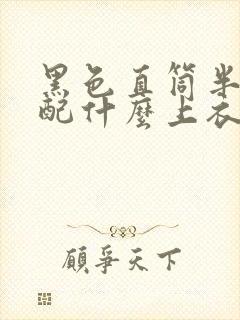 黑色直筒半
配什麼上衣
顧爭天下